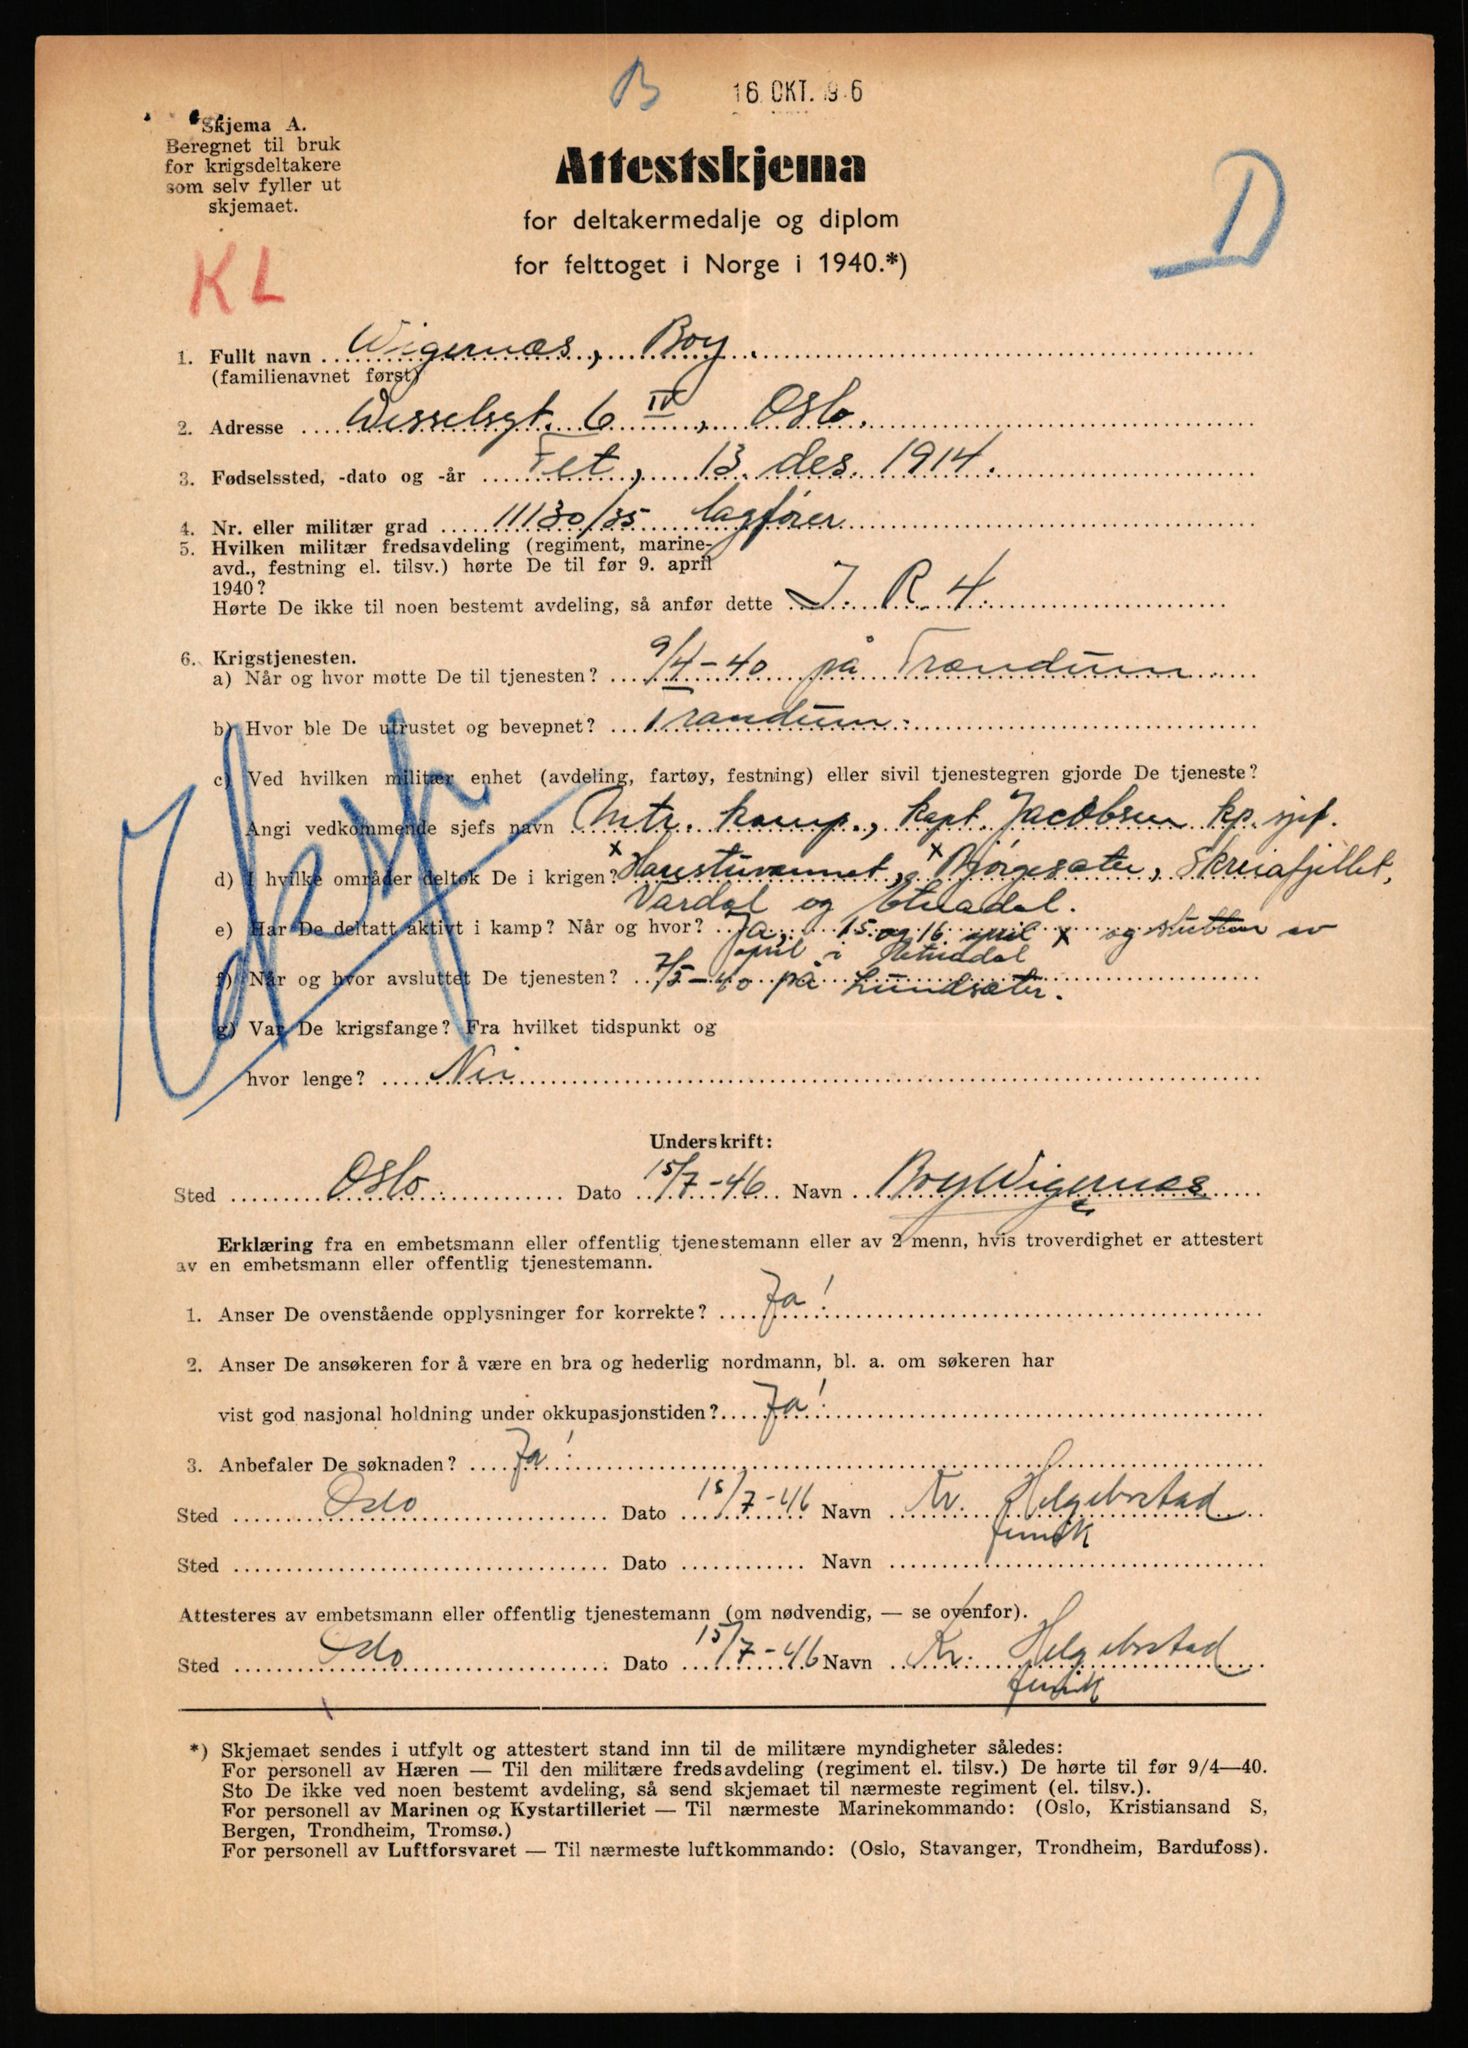 B
16 OKT. 96
Skjema A.
Beregnet til bruk
for krigsdeltakere
som selv fyller ut
skjemaet.
Attestskjema
for deltakermedalje og diplom
for felttoget i Norge i 1940.*)
D
KL
1. Fullt navn Wigernæs, Boy.
(familienavnet først)
2. Adresse Wesselsgt. 6 IV, Oslo.
3. Fødselssted, -dato og -år Fet, 13. des. 1914.
4. Nr. eller militær grad 11130/35 lagfører
5. Hvilken militær fredsavdeling (regiment, marine-
avd., festning el. tilsv.) hørte De til før 9. april
1940?
Hørte De ikke til noen bestemt avdeling, så anfør dette J. R. 4.
6. Krigstjenesten.
a) Når og hvor møtte De til tjenesten? 9/4-40 på Trandum
b) Hvor ble De utrustet og bevepnet? Trandum.
c) Ved hvilken militær enhet (avdeling, fartøy, festning) eller sivil tjenestegren gjorde De tjeneste?
Angi vedkommende sjefs navn Mtr. komp., kapt. Jacobsen kp. sjef.
d) I hvilke områder deltok De i krigen? x Harestuvannet, x Bjørgesæter, Skreiafjellet,
Vardal og Etnadal.
e) Har De deltatt aktivt i kamp? Når og hvor? Ja, 15. og 16. april x og slutten av
april i Etnadal
f) Når og hvor avsluttet De tjenesten? 2/5-40 på Lundsæter.
g) Var De krigsfange? Fra hvilket tidspunkt og
hvor lenge? Nei
Underskrift:
Sted Oslo Dato 15/7-46 Navn Boy Wigernæs
Erklæring fra en embetsmann eller offentlig tjenestemann eller av 2 menn, hvis troverdighet er attestert
av en embetsmann eller offentlig tjenestemann.
1. Anser De ovenstående opplysninger for korrekte? Ja!
2. Anser De ansøkeren for å være en bra og hederlig nordmann, bl. a. om søkeren har
vist god nasjonal holdning under okkupasjonstiden? Ja!
3. Anbefaler De søknaden? Ja!
Sted Oslo Dato 15/7-46 Navn Kr. Helgebostad
fenrik
Sted Dato Navn
Attesteres av embetsmann eller offentlig tjenestemann (om nødvendig, — se ovenfor).
Sted Oslo Dato 15/7-46 Navn Kr. Helgebostad
fenrik
*) Skjemaet sendes i utfylt og attestert stand inn til de militære myndigheter således:
For personell av Hæren — Til den militære fredsavdeling (regiment el. tilsv.) De hørte til før 9/4—40.
Sto De ikke ved noen bestemt avdeling, så send skjemaet til nærmeste regiment (el. tilsv.).
For personell av Marinen og Kystartilleriet — Til nærmeste Marinekommando: (Oslo, Kristiansand S,
Bergen, Trondheim, Tromsø.)
For personell av Luftforsvaret — Til nærmeste luftkommando: (Oslo, Stavanger, Trondheim, Bardufoss).